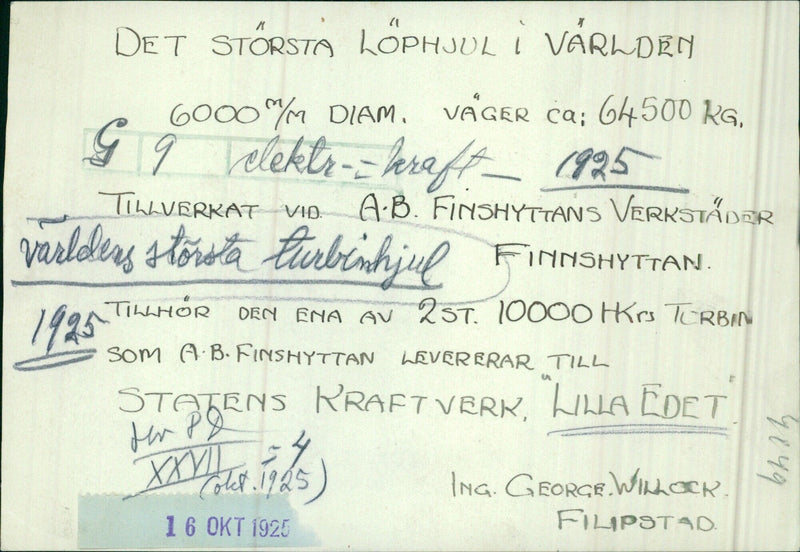 DET STÖRSTA LÖPHJUL I VÄRLDEN
6000 M/M DIAM. VÄGER ca: 64500 KG.
G 9 elektr-=kraft - 1925
TILLVERKAT VID A-B. FINSHYTTANS VERKSTÄDER
världens största turbinhjul FINNSHYTTAN.
1925 TILLHÖR DEN ENA AV 2 ST. 10000 HKrs TURBIN
SOM A-B. FINSHYTTAN LEVERERAR TILL
STATENS KRAFTVERK, "LILLA EDET".
XXVII = 4
(okt. 1925)
ING. GEORGE WILLOCK.
FILIPSTAD.
16 OKT 1925